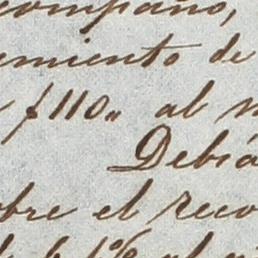 compaño,
miento de
$110,, al
Debió
bre el reco
6 1%